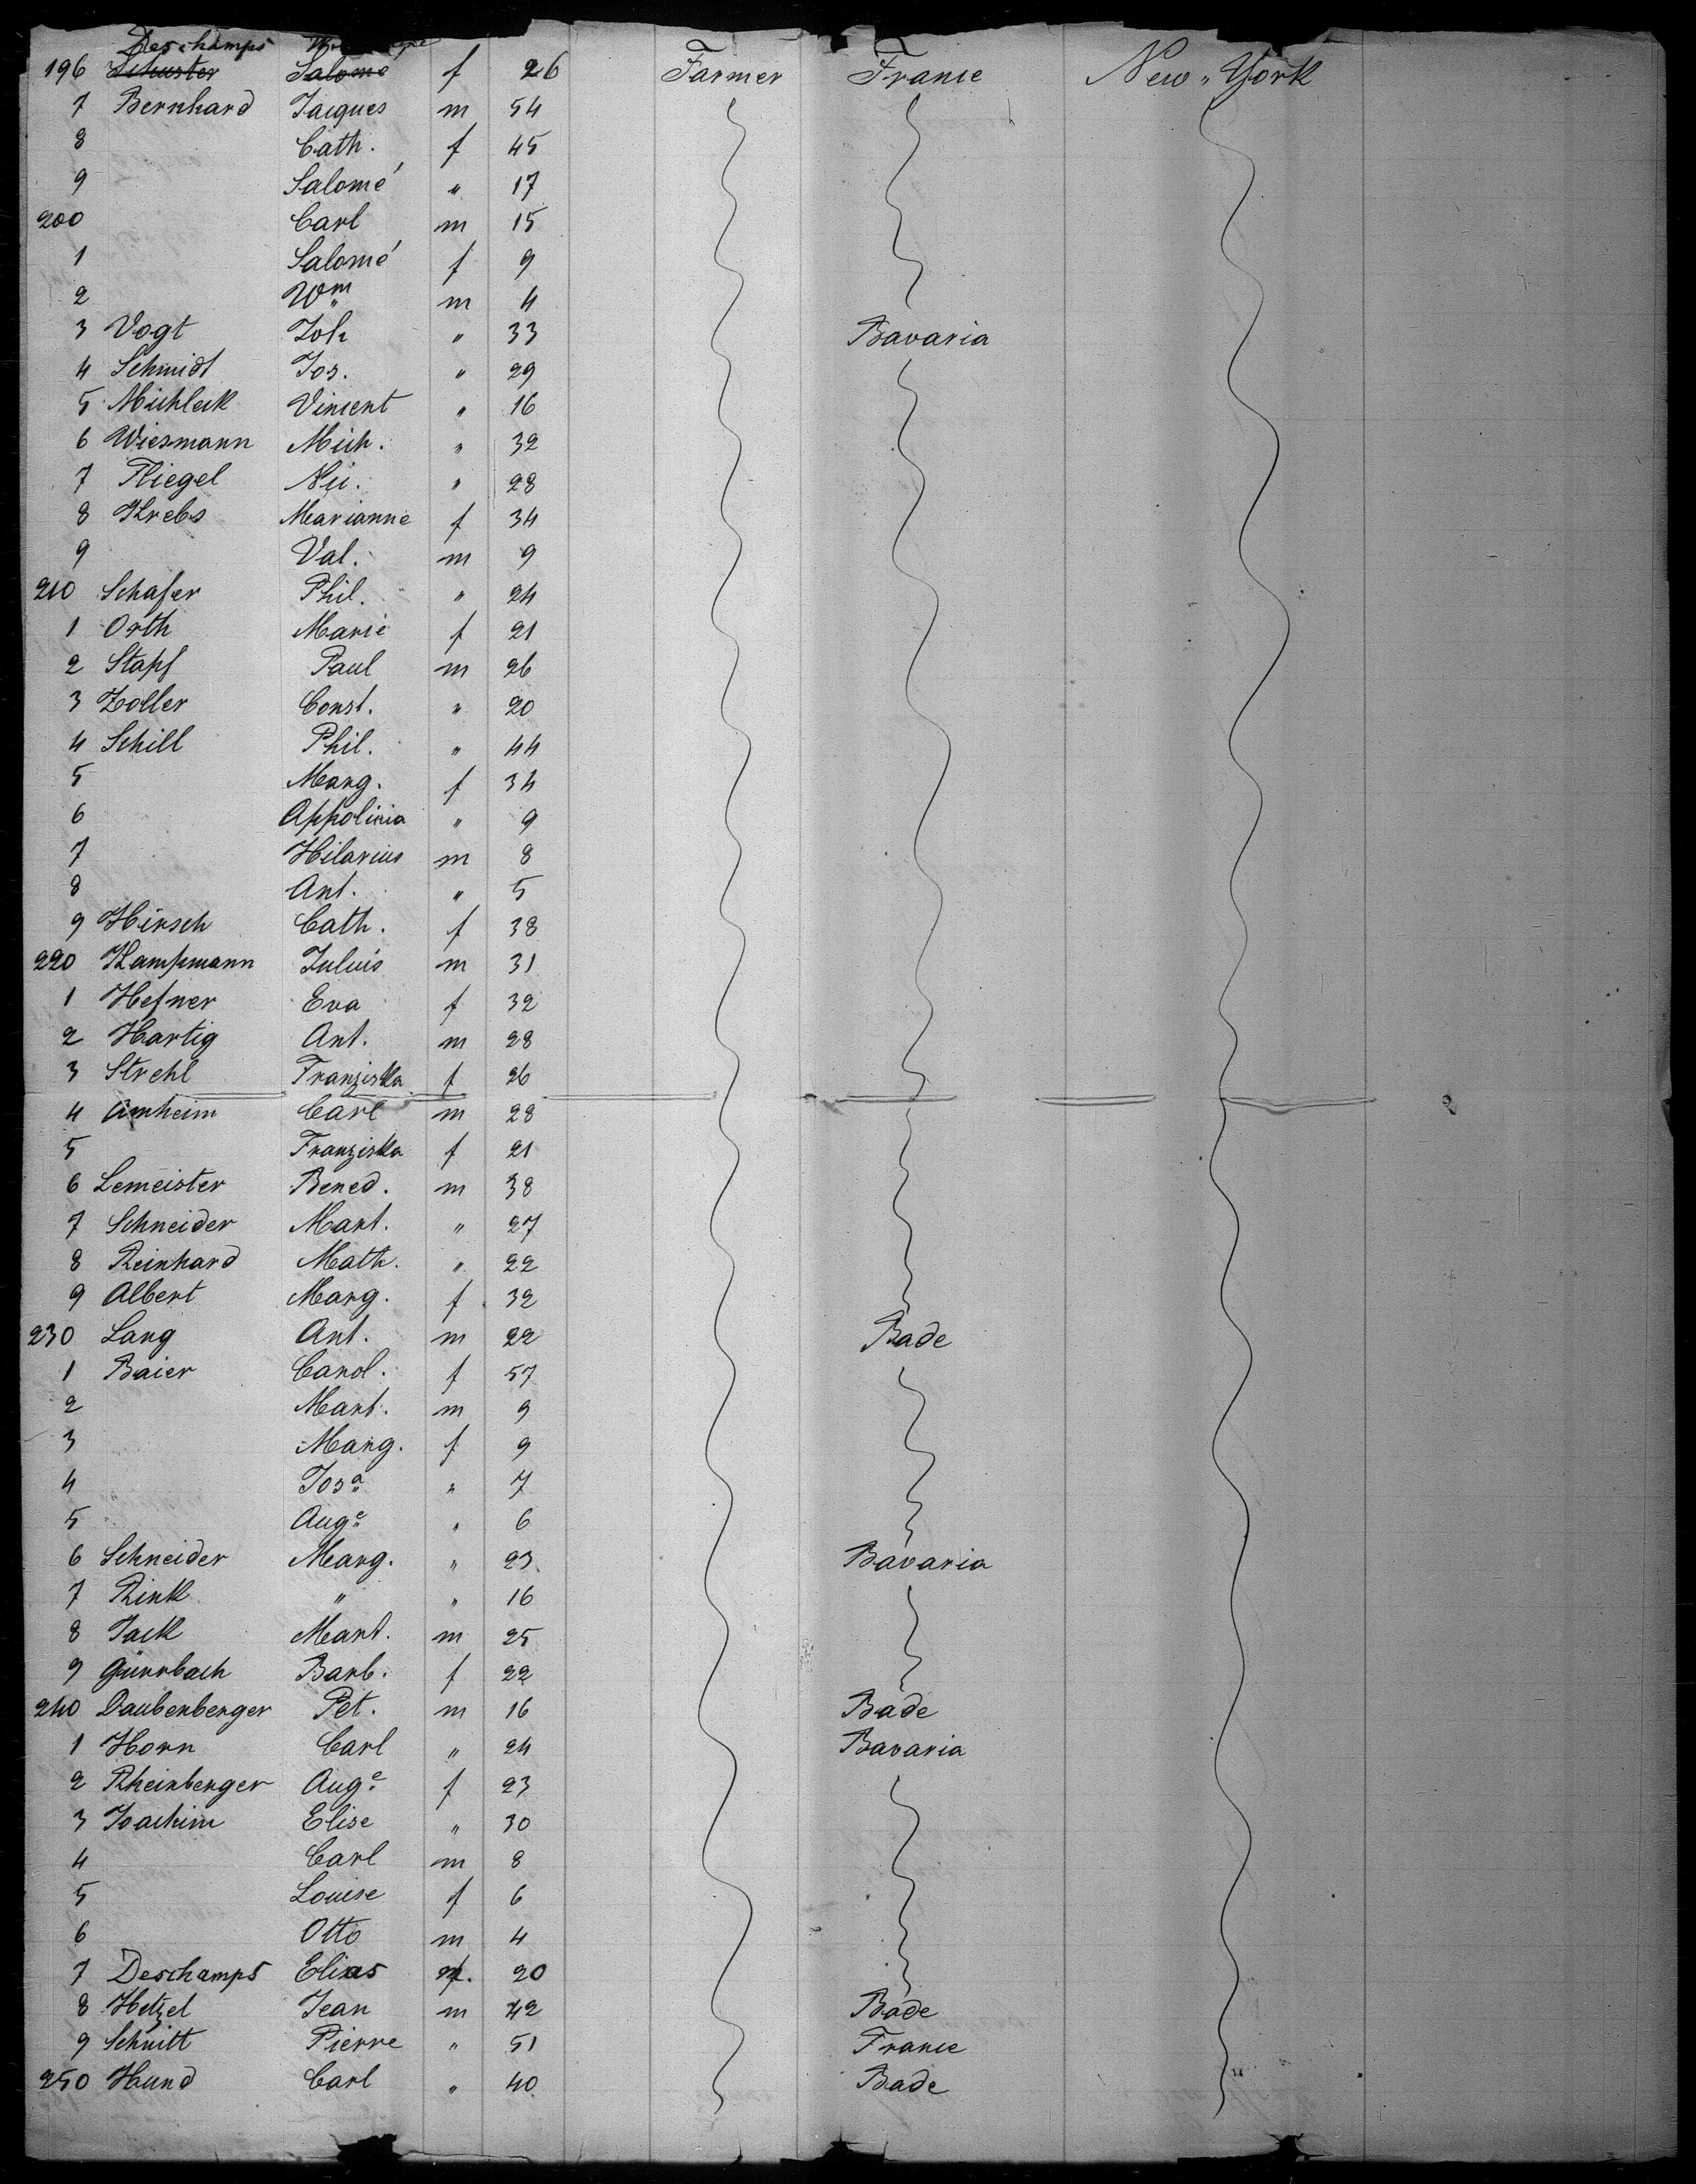 Deschamps
196 Schuster Salome f 26 Farmer France New-York
7 Bernhard Jacques m 54
8 Cath. f 45
9 Salomé " 17
200 Carl m 15
1 Salomé f 9
2 Wm m 4
3 Vogt Joh " 33 Bavaria
4 Schmidt Jos. " 29
5 Michleck Vincent " 16
6 Wiesmann Mich. " 32
7 Fliegel Nic. " 28
8 Krebs Marianne f 34
9 Val. m 9
210 Schafer Phil. " 24
1 Orth Marie f 21
2 Stapf Paul m 26
3 Zoller Const. " 20
4 Schill Phil. " 44
5 Marg. f 34
6 Appolinia " 9
7 Hilarius m 8
8 Ant. " 5
9 Hirsch Cath. f 38
220 Kampmann Julius m 31
1 Hefner Eva f 32
2 Hartig Ant. m 28
3 Strehl Franziska f 26
4 Amheim Carl m 28
5 Franziska f 21
6 Lemeister Bened. m 38
7 Schneider Mart. " 27
8 Reinhard Math. " 22
9 Albert Marg. f 32
230 Lang Ant. m 22 Bade
1 Baier Carol. f 57
2 Mart. m 9
3 Marg. f 9
4 Josa " 7
5 Auge " 6
6 Schneider Marg. " 23 Bavaria
7 Rink " " 16
8 Jack Mart. m 25
9 Gürrbach Barb. f 22
240 Daubenberger Pet. m 16 Bade
1 Horn Carl " 24 Bavaria
2 Rheinberger Auge f 23
3 Joachim Elise " 30
4 Carl m 8
5 Louise f 6
6 Otto m 4
7 Deschamps Elias 20
8 Hetzel Jean m 42 Bade
9 Schnitt Pierre " 51 France
250 Hund Carl " 40 Bade